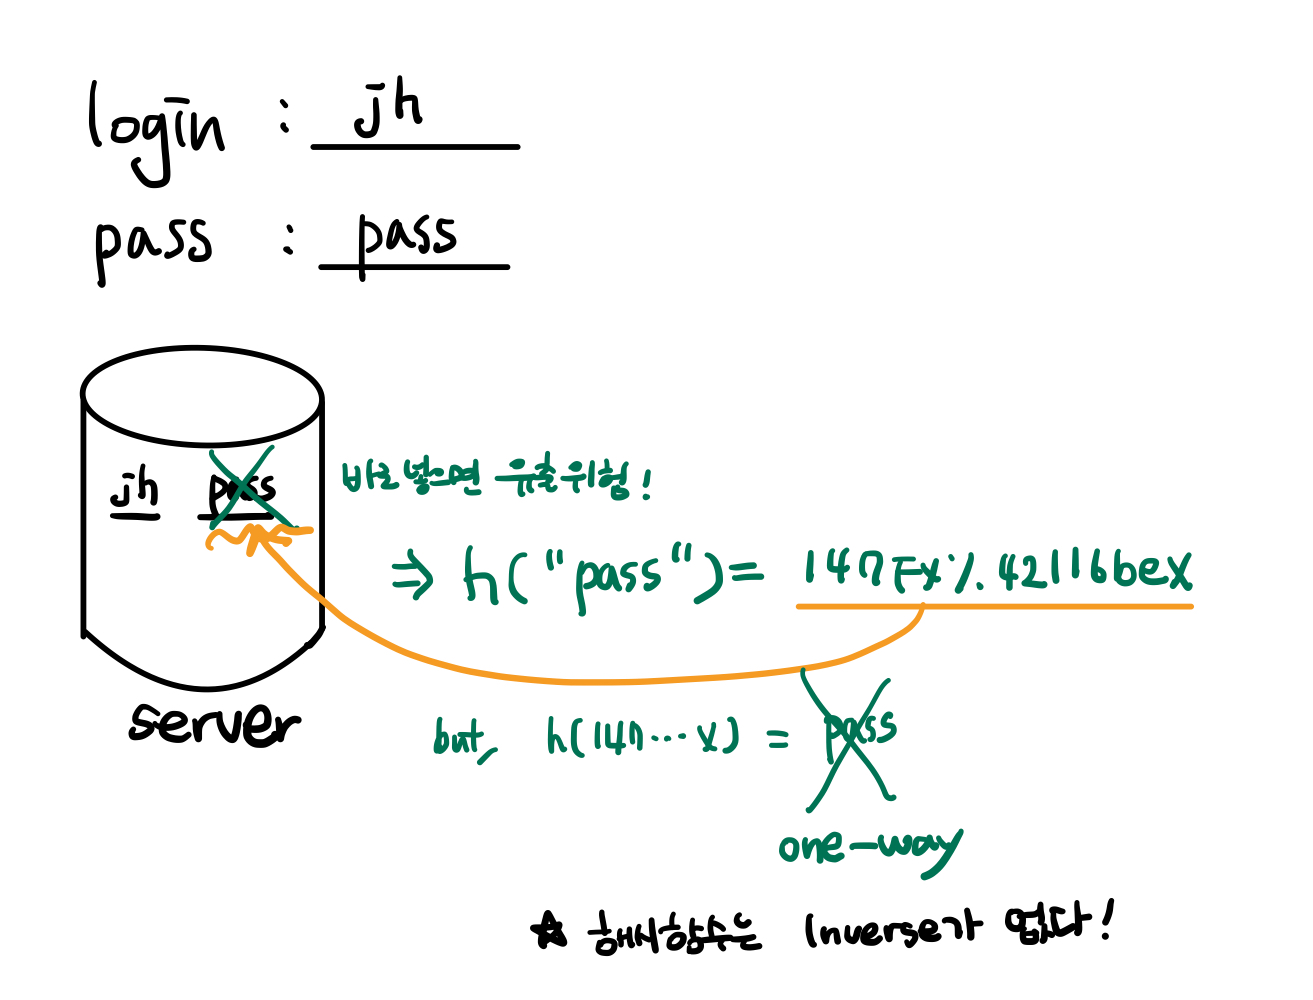 login : jh
pass : pass
jh pass
바로 넣으면 유출위험!
⇒ h("pass") = 147Fx%.42116bex
server
but, h(147...x) = pass
one-way
☆ 해시함수는 Inverse가 없다!